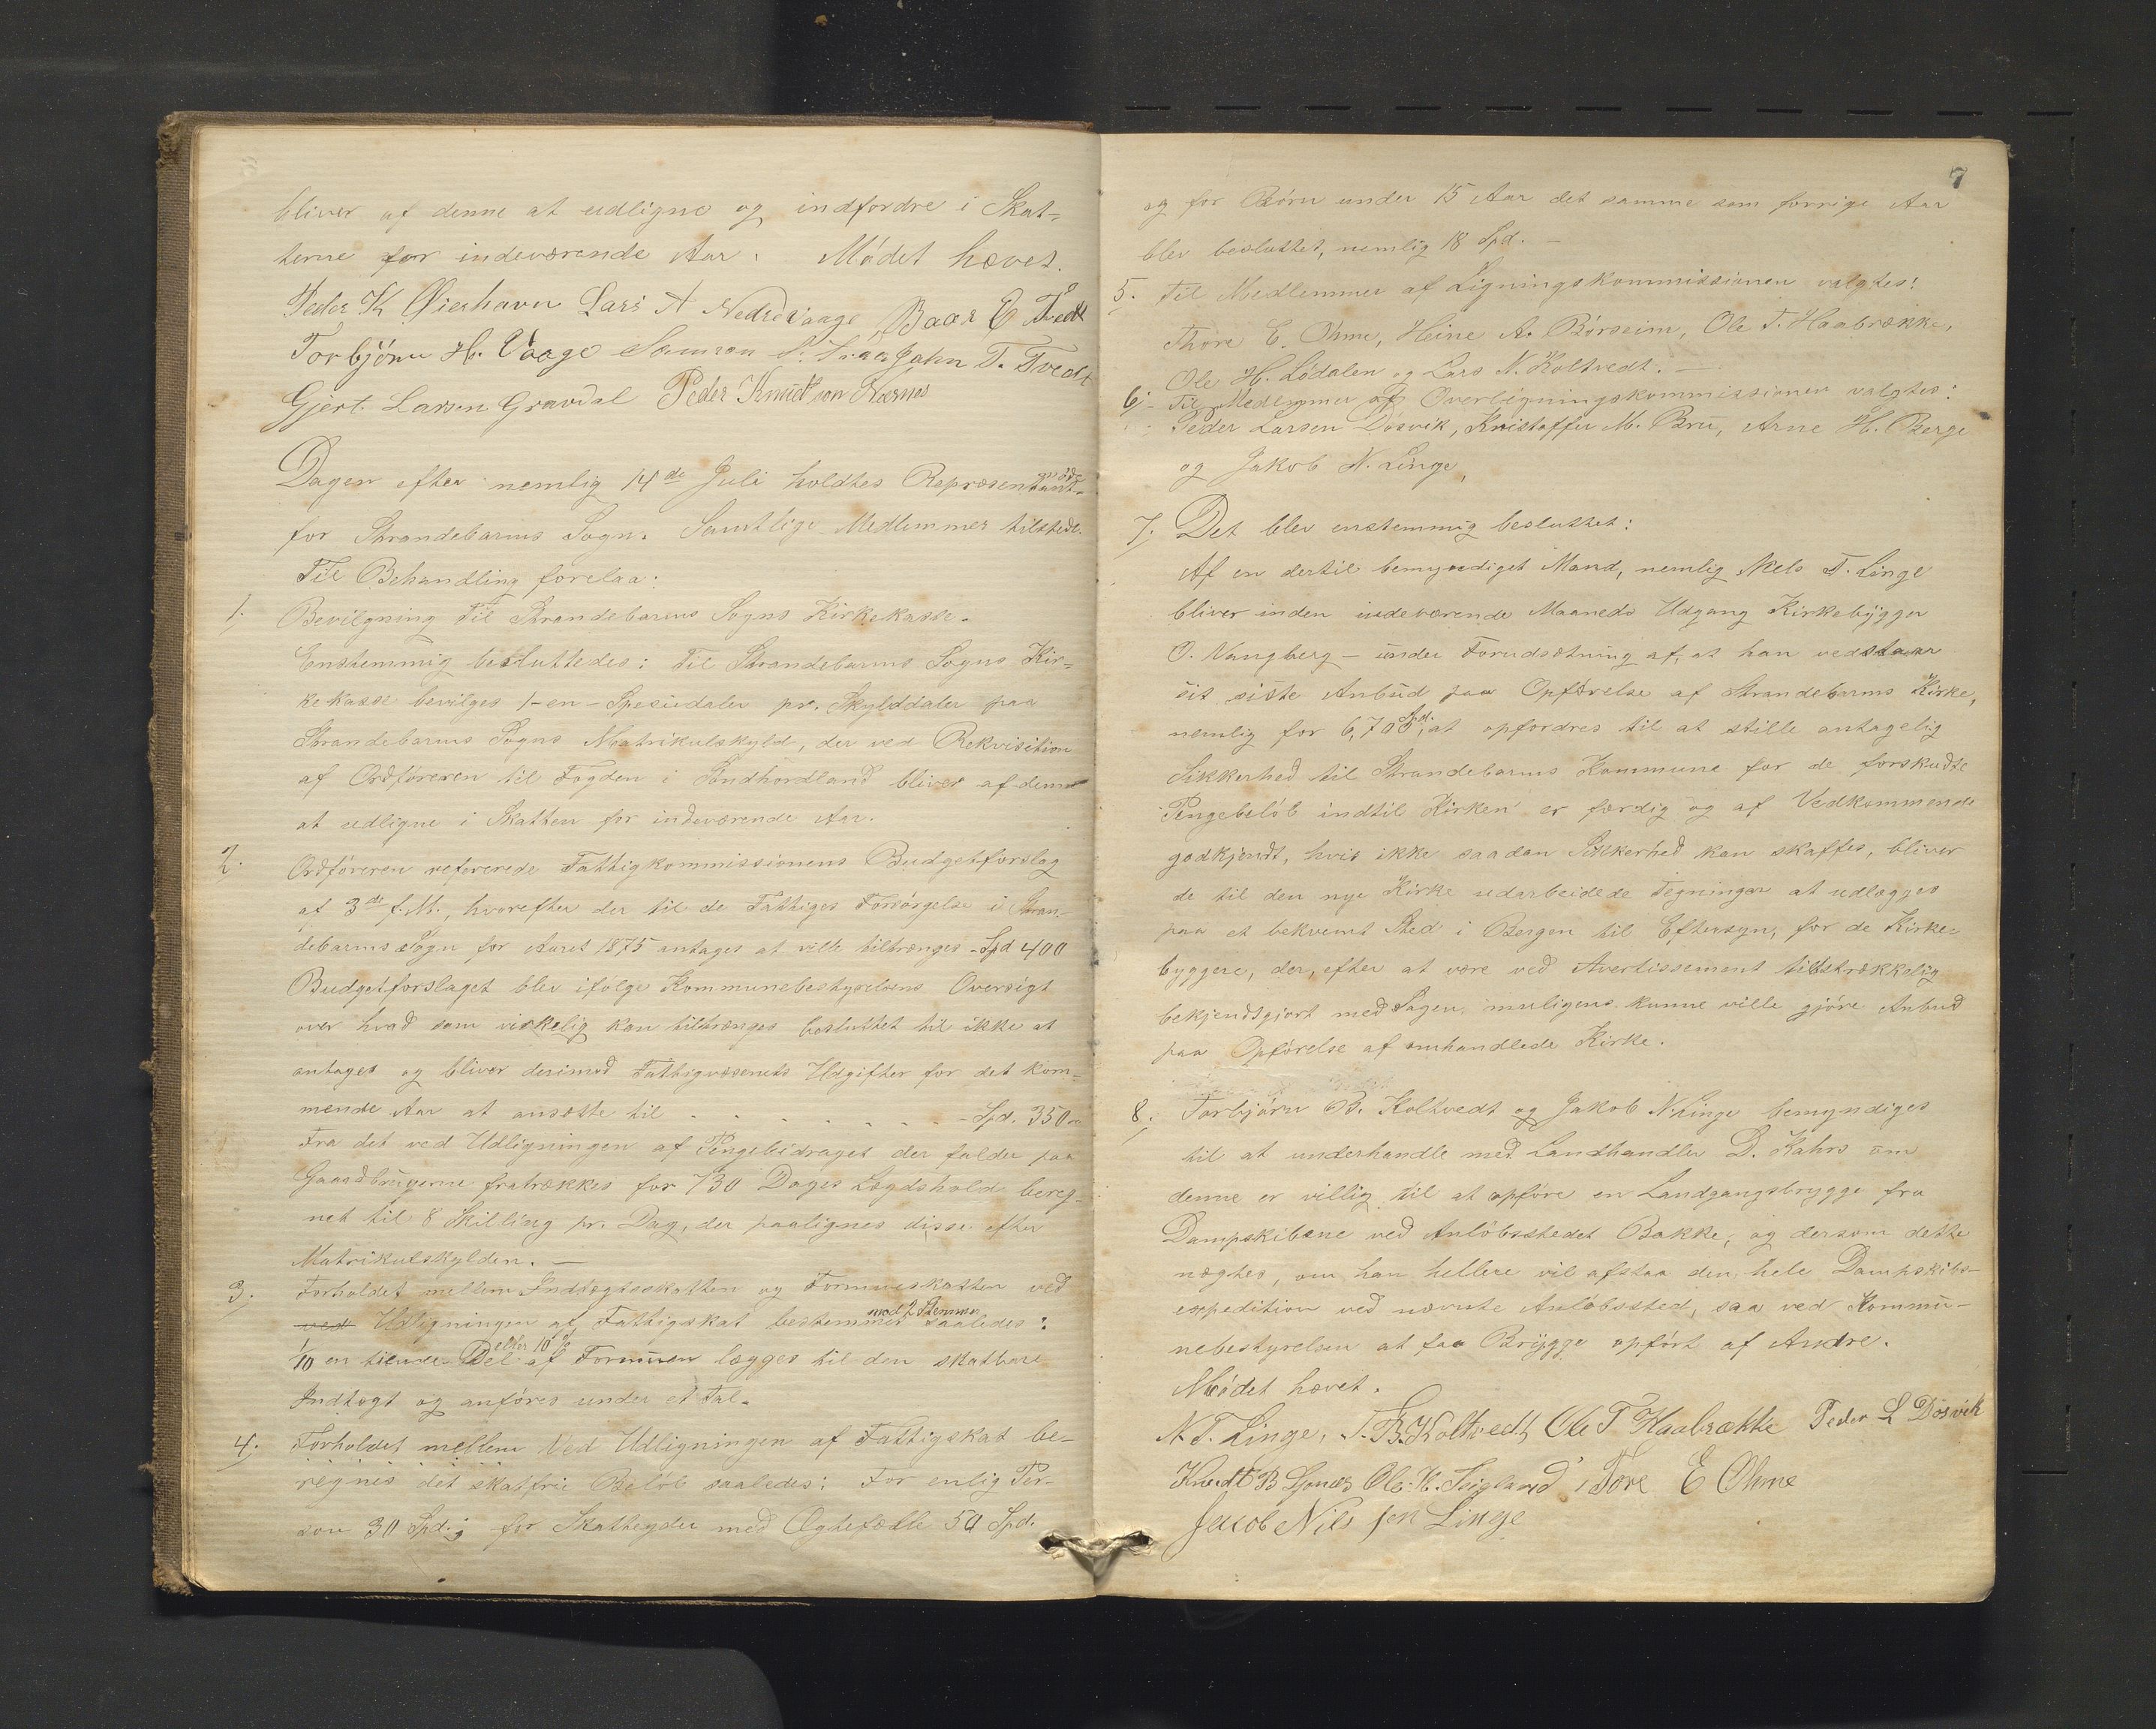 bliver af denne at udligne og indfordre i Skat-
terne for indeværende Aar. Mødet hævet.
Peder K Øierhavn Lars A Nedrevaage, Baar E Tvedt
Torbjörn H. Vaage Samson John T. Tvedt
Gjert Larsen Gravdal Peder Knudtson Nærnes
Dagen efter nemlig 14de Juli holdtes Repræsentantmöde
for Strandebarms Sogn. Samtlige Medlemmer tilstede.
Til Behandling forelaa:
1. Bevilgning til Strandebarms Sogns Kirkekasse.
Enstemmig besluttedes: Til Strandebarms Sogns Kir-
kekasse bevilges 1-en-Speciedaler pr. Skylddaler paa
Strandebarms Sogns Matrikulskyld, der ved Rekvisition
af Ordföreren til Fogden i Söndhordland bliver af denne
at udligne i Skatten for indeværende Aar.
2. Ordföreren refererede Fattigkommissionens Budgetforslag
af 3de f.M., hvorefter der til de Fattiges Forsörgelse i Stran-
debarms Sogn for Aaret 1875 antages at ville tiltrænges - Spd 400
Budgetforslaget blev ifölge Kommunebestyrelsens Oversigt
over hvad som virkelig kan tiltrænges besluttet til ikke at
antages og bliver derimod Fattigvæsenets Udgifter for det kom-
mende Aar at ansætte til - - - - - - Spd. 350
Fra det ved Udligningen af Pengebidraget der falder paa
Gaardbrugerne fratrækkes for 730 Dages Lægdshold bereg-
net til 8 Skilling pr. Dag, der paalignes disse efter
Matrikulskylden. —
3. Forholdet mellem Indtægtsskatten og Formuesskatten ved
ved Udligningen af Fattigskat bestemmes mod 2 Stemmer saaledes:
1/10 en tiende Del eller 10 % af Formuen lægges til den skatbare
Indtægt og anföres under et Tal.
4. Forholdet mellem Ved Udligningen af Fattigskat be-
regnes det skatfrie Belöb saaledes: For enlig Per-
son 30 Spd.; for Skatteyder med Ægtefælle 50 Spd.
7
og for Börn under 15 Aar det samme som forrige Aar
blev besluttet, nemlig 18 Spd. —
5. Til Medlemmer af Ligningskommissionen valgtes:
Thore E. Ohme, Heine A. Börseim, Ole T. Haabrække,
Ole H. Lödalen og Lars N. Koltvedt. —
6. Til Medlemmer af Overligningskommissionen valgtes:
Peder Larsen Dösvik, Kristoffer M. Bru, Arne H. Berge
og Jakob N. Linge.
7. Det blev enstemmig besluttet:
Af en dertil bemyndiget Mand, nemlig Nels T. Linge
bliver inden indeværende Maaneds Udgang Kirkebygger
O. Vangberg - under Forudsætning af, at han vedstaar
sit siste Anbud paa Opförelse af Strandebarms Kirke,
nemlig for 6,700 Spd., at opfordres til at stille antagelig
Sikkerhed til Strandebarms Kommune for de forskudte
Pengebelöb indtil Kirken er færdig og af Vedkommende
godkjendt, hvis ikke saadan Sikkerhed kan skaffes, bliver
de til den nye Kirke udarbeidede Tegninger at udlægges
paa et bekvemt Sted i Bergen til Eftersyn, for de Kirke-
byggere, der, efter at være ved Avertissement tilstrækkelig
bekjendtgjort med Sagen, muligens kunne ville gjöre Anbud
paa Opförelse af omhandlede Kirke.
8. Torbjörn B. Koltvedt og Jakob N. Linge bemyndiges
til at underhandle med Landhandler D. Kahrs om
denne er villig til at opföre en Landgangsbrygge fra
Dampskibene ved Anlöbsstedet Bakke, og dersom dette
nægtes, om han hellere vil afstaa den hele Dampskibs-
expedition ved nævnte Anlöbssted, saa ved Kommu-
nebestyrelsen at faa Brygge opfört af Andre.
Mödet hævet.
N. T. Linge, T. B. Koltvedt, Ole T Haabrække Peder L Dösvik
Knudt B Ole H. Tore E Ohme
Jacob Nilssen Linge